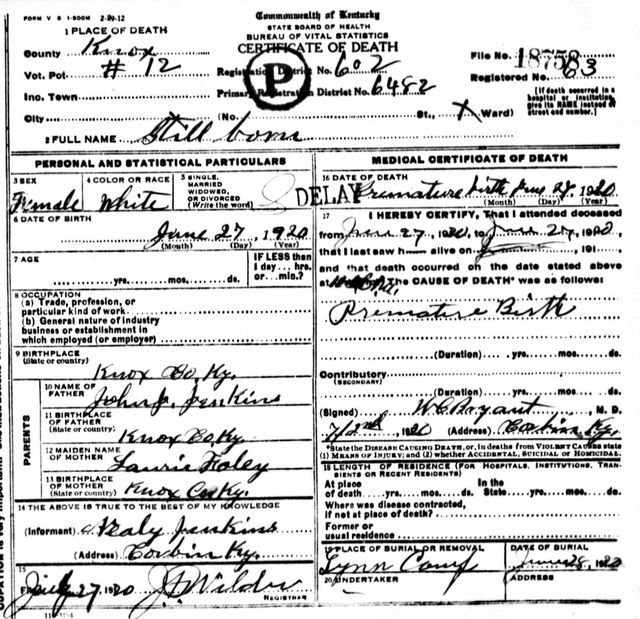 FORM V S 1-500M 2-29-12
Commonwealth of Kentucky
STATE BOARD OF HEALTH
BUREAU OF VITAL STATISTICS
CERTIFICATE OF DEATH
1 PLACE OF DEATH
County Knox
Vot. Pct # 12
Inc. Town
City
Registration District No. 602
Primary Registration District No. 6482
P
File No. 18758
Registered No. 63
[If death occurred in a hospital or institution, give its NAME instead of street and number.]
(No. St., X Ward)
2 FULL NAME Still born
PERSONAL AND STATISTICAL PARTICULARS
3 SEX Female
4 COLOR OR RACE White
5 SINGLE, MARRIED WIDOWED, OR DIVORCED (Write the word) S
6 DATE OF BIRTH
June 27, 1920
(Month) (Day) (Year)
7 AGE
yrs. mos. ds.
IF LESS than 1 day... hrs. or...min.?
8 OCCUPATION
(a) Trade, profession, or particular kind of work
(b) General nature of industry business or establishment in which employed (or employer)
9 BIRTHPLACE (State or country)
Knox Co. Ky.
PARENTS
10 NAME OF FATHER John J. Jenkins
11 BIRTHPLACE OF FATHER (State or country)
Knox Co Ky.
12 MAIDEN NAME OF MOTHER Laurie Foley
13 BIRTHPLACE OF MOTHER (State or country)
Knox Co Ky.
14 THE ABOVE IS TRUE TO THE BEST OF MY KNOWLEDGE
(Informant) Nealy Jenkins
(Address) Corbin Ky.
15
Filed July 27 1920
REGISTRAR
MEDICAL CERTIFICATE OF DEATH
16 DATE OF DEATH
DELAY Premature birth June 27, 1920
(Month) (Day) (Year)
17 I HEREBY CERTIFY, That I attended deceased
from June 27, 1920, to June 27, 1920,
that I last saw h alive on 191
and that death occurred on the date stated above
at The CAUSE OF DEATH* was as follows:
Premature Birth
(Duration) yrs. mos. ds.
Contributory (SECONDARY)
(Duration) yrs. mos. ds.
(Signed) W C Bryant, M. D.
7/2nd, 1920 (Address) Corbin Ky.
*State the DISEASE CAUSING DEATH, or, in deaths from VIOLENT CAUSES state (1) MEANS OF INJURY; and (2) whether ACCIDENTAL, SUICIDAL or HOMICIDAL.
18 LENGTH OF RESIDENCE (FOR HOSPITALS, INSTITUTIONS, TRANSIENTS OR RECENT RESIDENTS)
At place of death yrs. mos. ds. In the State yrs. mos. ds.
Where was disease contracted, if not at place of death?
Former or usual residence
19 PLACE OF BURIAL OR REMOVAL
Lynn Camp
DATE OF BURIAL
June 28, 1920
20 UNDERTAKER
ADDRESS